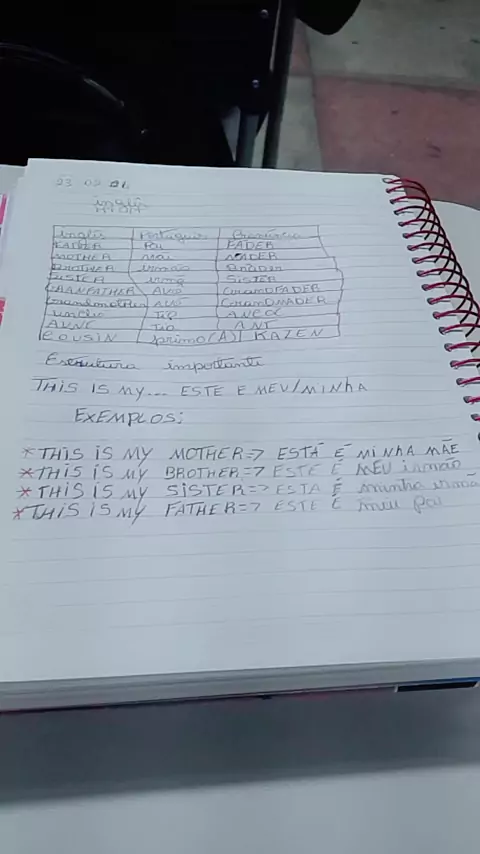 23 02
inglês
inglês Português Pronúncia
FATHER Pai FADER
MOTHER Mãe MADER
BROTHER irmão BRODER
SISTER irmã SISTER
GRANFATHER Avô GRANDFADER
Grandmother Avó GranDMADER
uncle Tio
AUNT Tia ANT
COUSIN primo(A) KAZEN
Estrutura importante
THIS IS MY... ESTE E MEU/MINHA
EXEMPLOS:
*THIS IS MY MOTHER=> ESTÁ É MINHA MÃE
*THIS IS MY BROTHER=> ESTE É MEU irmão
*THIS IS MY SISTER=> ESTA É minha irmã
*THIS IS MY FATHER=> ESTE É meu pai